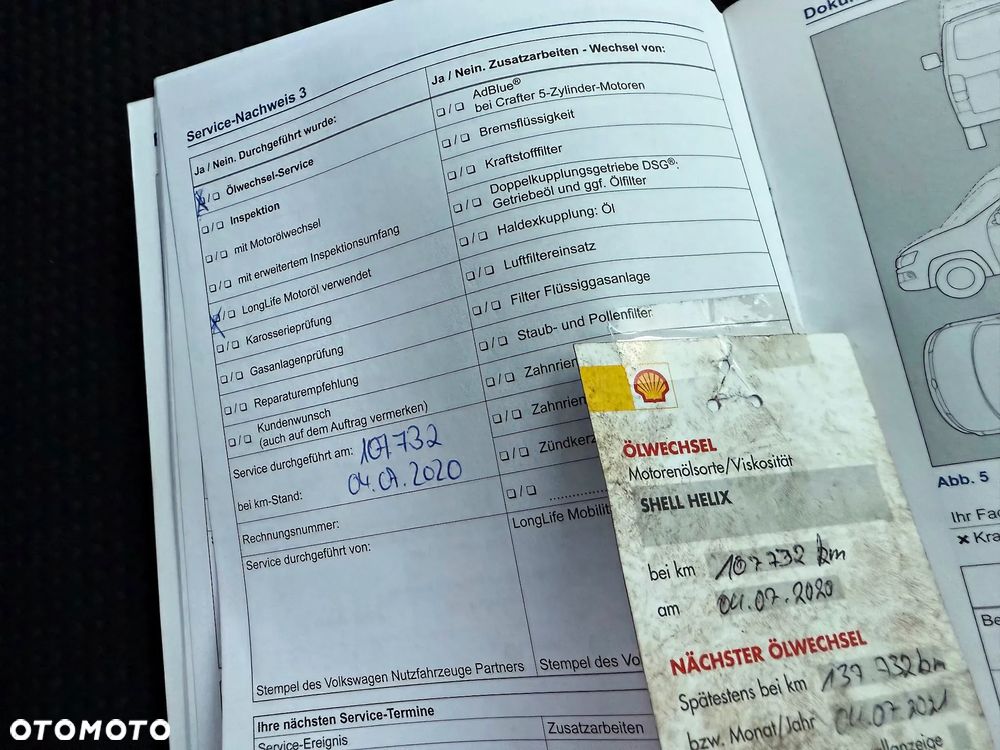 Service-Nachweis 3
Ja / Nein. Durchgeführt wurde:
Ölwechsel-Service
Inspektion
mit Motorölwechsel
mit erweitertem Inspektionsumfang
LongLife Motoröl verwendet
Karosserieprüfung
Gasanlagenprüfung
Reparaturempfehlung
Kundenwunsch
(auch auf dem Auftrag vermerken)
Service durchgeführt am: 107732
bei km-Stand: 04.07.2020
Rechnungsnummer:
Service durchgeführt von:
Stempel des Volkswagen Nutzfahrzeuge Partners
Ihre nächsten Service-Termine
Service-Ereignis
Ja / Nein. Zusatzarbeiten - Wechsel von:
AdBlue®
bei Crafter 5-Zylinder-Motoren
Bremsflüssigkeit
Kraftstofffilter
Doppelkupplungsgetriebe DSG®:
Getriebeöl und ggf. Ölfilter
Haldexkupplung: Öl
Luftfiltereinsatz
Filter Flüssiggasanlage
Staub- und Pollenfilter
Zahnrien
Zahnrien
Zündkerz
LongLife Mobilit
Stempel des Vo
Zusatzarbeiten
ÖLWECHSEL
Motorenölsorte/Viskosität
SHELL HELIX
bei km 107732 km
am 04.07.2020
NÄCHSTER ÖLWECHSEL
Spätestens bei km 137 732 km
bzw. Monat/Jahr 04.07.2021
Doku
Abb. 5
Ihr Fac
× Kra
Be
OTOMOTO